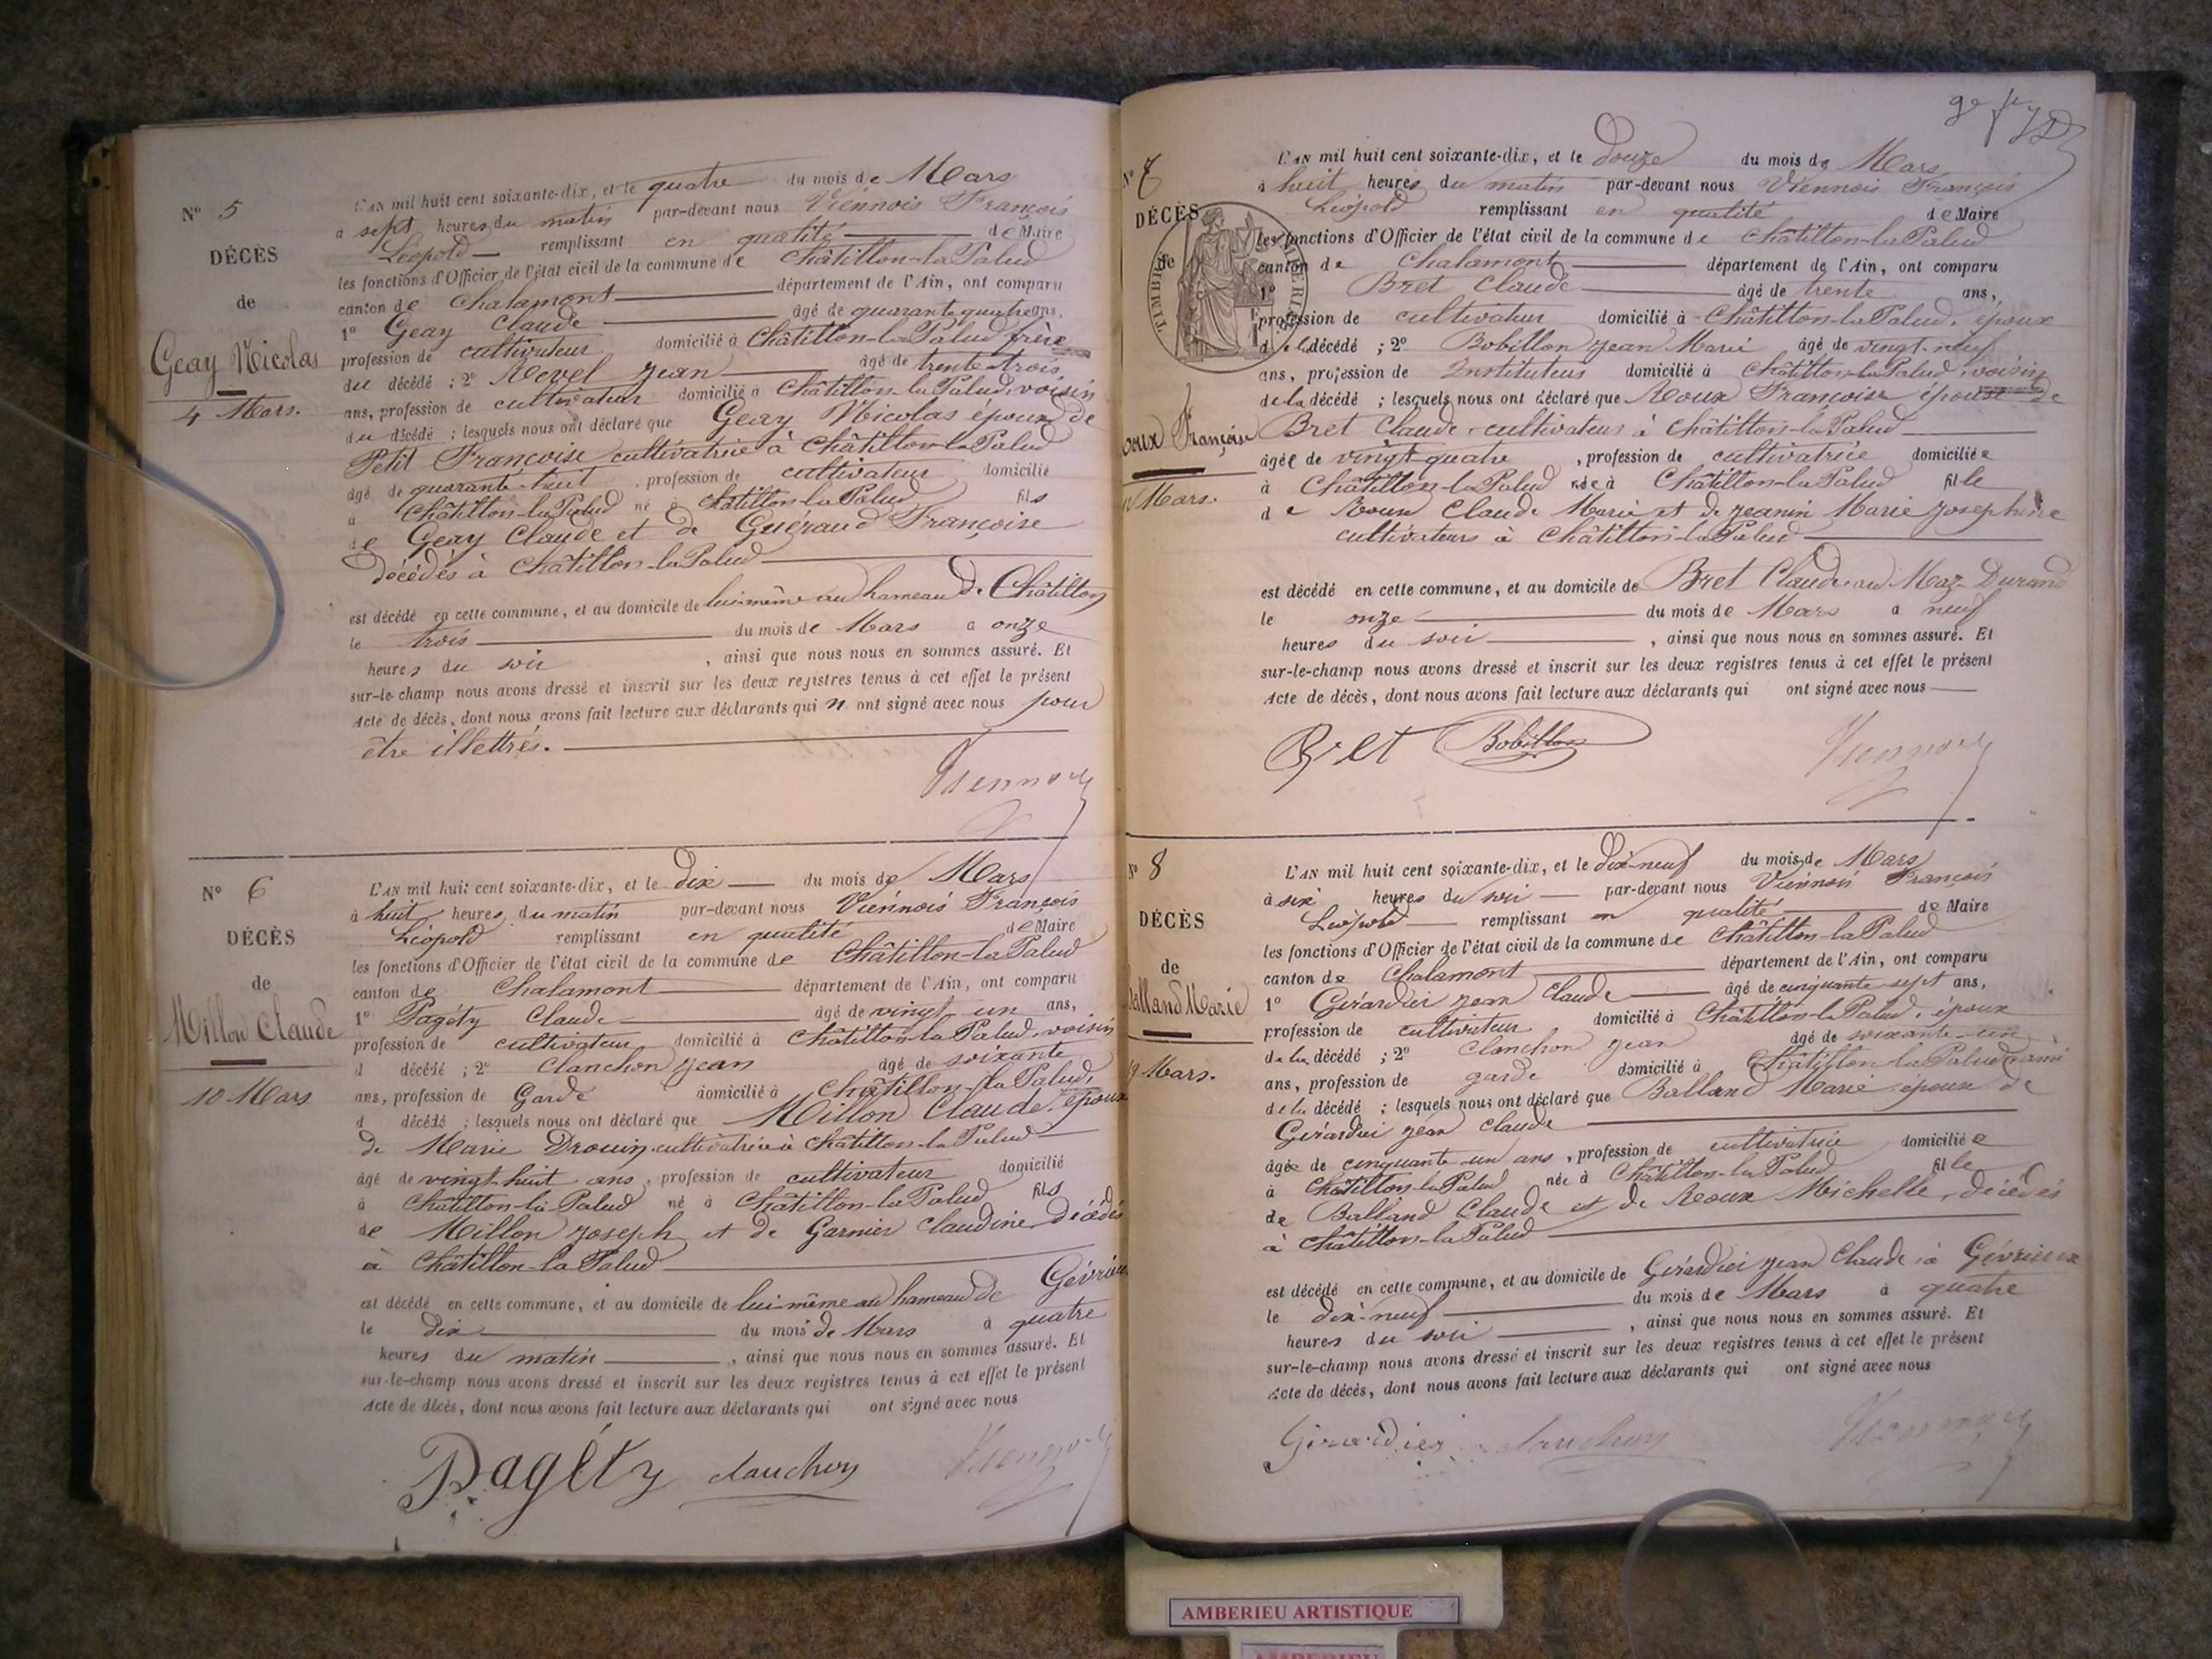 N° 5
DÉCÈS
de
Geay Nicolas
4 Mars.
L'AN mil huit cent soixante-dix, et le quatre du mois de Mars
à sept heures du matin par-devant nous Viennois François
Léopold remplissant en qualité de Maire
les fonctions d'Officier de l'état civil de la commune de Châtillon-la-Palud
canton de Chalamont département de l'Ain, ont comparu
1° Geay Claude âgé de quarante quatre ans,
profession de cultivateur domicilié à Châtillon-la-Palud frère
du décédé ; 2° Revel Jean âgé de trente-trois
ans, profession de cultivateur domicilié à Châtillon-la-Palud, voisin
du décédé ; lesquels nous ont déclaré que Geay Nicolas époux de
Petit Françoise cultivatrice à Châtillon-la-Palud
âgé de quarante-huit , profession de cultivateur domicilié
à Châtillon-la-Palud né à Châtillon-la-Palud fils
de Geay Claude et de Guéraud Françoise
décédés à Châtillon-la-Palud
est décédé en cette commune, et au domicile de lui-même au hameau de Châtillon
le trois du mois de Mars à onze
heures du soir , ainsi que nous nous en sommes assuré. Et
sur-le-champ nous avons dressé et inscrit sur les deux registres tenus à cet effet le présent
Acte de décès, dont nous avons fait lecture aux déclarants qui n ont signé avec nous pour
être illettrés.
Viennois
N° 6
DÉCÈS
de
Millon Claude
10 Mars
L'AN mil huit cent soixante-dix, et le dix du mois de Mars
à huit heures du matin par-devant nous Viennois François
Léopold remplissant en qualité de Maire
les fonctions d'Officier de l'état civil de la commune de Châtillon-la-Palud
canton de Chalamont département de l'Ain, ont comparu
1° Pagéty Claude âgé de vingt un ans,
profession de cultivateur domicilié à Châtillon-la-Palud, voisin
d décédé ; 2° Clanchon Jean âgé de soixante
ans, profession de Garde domicilié à Châtillon-la-Palud,
d décédé ; lesquels nous ont déclaré que Millon Claude, époux
de Marie Drouin cultivatrice à Châtillon-la-Palud
âgé de vingt huit ans , profession de cultivateur domicilié
à Châtillon-la-Palud né à Châtillon-la-Palud fils
de Millon Joseph et de Garnier Claudine décédés
à Châtillon-la-Palud
est décédé en cette commune, et au domicile de lui-même au hameau de Gévrieu
le dix du mois de Mars à quatre
heures du matin , ainsi que nous nous en sommes assuré. Et
sur-le-champ nous avons dressé et inscrit sur les deux registres tenus à cet effet le présent
Acte de décès, dont nous avons fait lecture aux déclarants qui ont signé avec nous
Pagéty clanchon Viennois
N° 7
DÉCÈS
de
oux Françoise
11 Mars.
L'AN mil huit cent soixante-dix, et le douze du mois de Mars
à huit heures du matin par-devant nous Viennois François
Léopold remplissant en qualité de Maire
les fonctions d'Officier de l'état civil de la commune de Châtillon-la-Palud
canton de Chalamont département de l'Ain, ont comparu
1° Bret Claude âgé de trente ans,
profession de cultivateur domicilié à Châtillon-la-Palud, époux
de la décédé ; 2° Bobillon Jean Marie âgé de vingt-neuf
ans, profession de Instituteur domicilié à Châtillon-la-Palud, voisin
de la décédé ; lesquels nous ont déclaré que Roux Françoise épouse de
Bret Claude cultivateur à Châtillon-la-Palud
âgée de vingt-quatre , profession de cultivatrice domiciliée
à Châtillon-la-Palud née à Châtillon-la-Palud fille
de Roux Claude Marie et de Jeanin Marie Josephine
cultivateurs à Châtillon-la-Palud
est décédé en cette commune, et au domicile de Bret Claude au Maz Durand
le onze du mois de Mars à neuf
heures du soir , ainsi que nous nous en sommes assuré. Et
sur-le-champ nous avons dressé et inscrit sur les deux registres tenus à cet effet le présent
Acte de décès, dont nous avons fait lecture aux déclarants qui ont signé avec nous
Bret Bobillon Viennois
N° 8
DÉCÈS
de
Balland Marie
19 Mars.
L'AN mil huit cent soixante-dix, et le dix-neuf du mois de Mars
à six heures du soir par-devant nous Viennois François
Léopold remplissant en qualité de Maire
les fonctions d'Officier de l'état civil de la commune de Châtillon-la-Palud
canton de Chalamont département de l'Ain, ont comparu
1° Gérardier Jean Claude âgé de cinquante sept ans,
profession de cultivateur domicilié à Châtillon-la-Palud, époux
de la décédé ; 2° Clanchon Jean âgé de soixante-un
ans, profession de garde domicilié à Châtillon-la-Palud ami
de la décédé ; lesquels nous ont déclaré que Balland Marie épouse de
Gérardier Jean Claude
âgée de cinquante-un ans , profession de cultivatrice domiciliée
à Châtillon-la-Palud née à Châtillon-la-Palud fille
de Balland Claude et de Roux Michelle, décédés
à Châtillon-la-Palud
est décédé en cette commune, et au domicile de Gérardier Jean Claude à Gévrieux
le dix-neuf du mois de Mars à quatre
heures du soir , ainsi que nous nous en sommes assuré. Et
sur-le-champ nous avons dressé et inscrit sur les deux registres tenus à cet effet le présent
Acte de décès, dont nous avons fait lecture aux déclarants qui ont signé avec nous
Girardier clanchon Viennois
AMBERIEU ARTISTIQUE
AMBERIEU